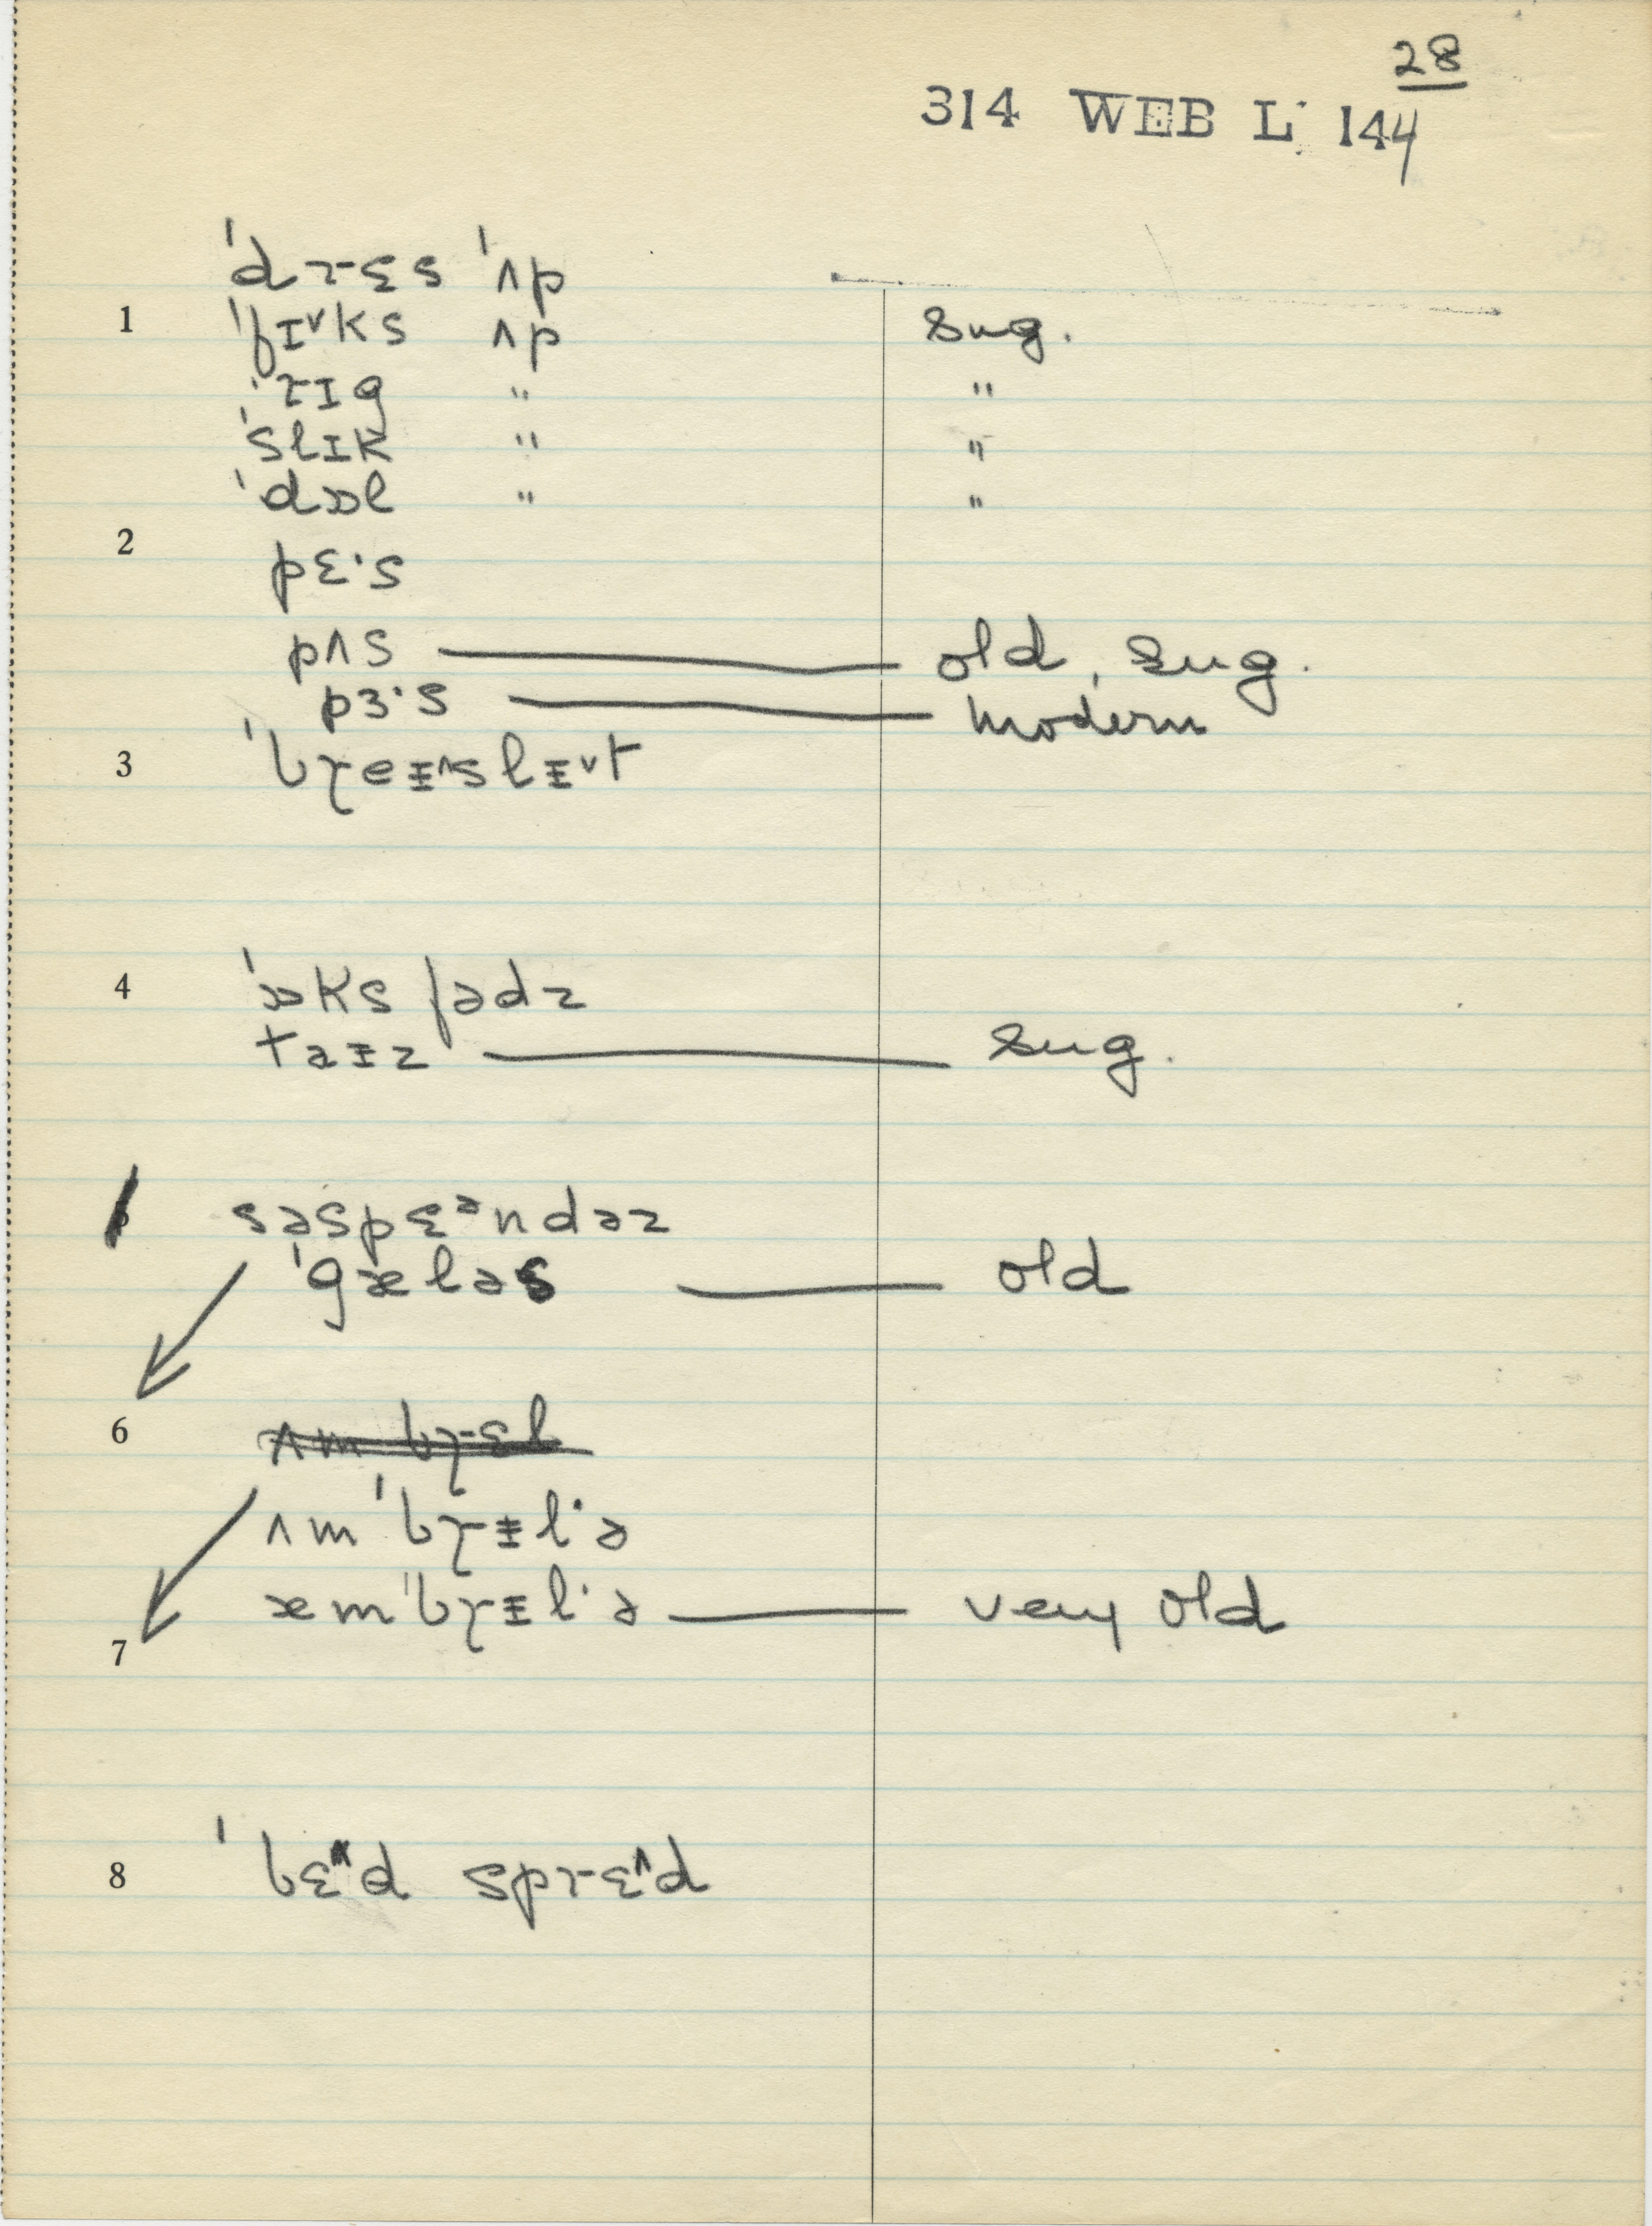 28
314 WEB L 144
ˈdrɛs ˈʌp
1 ˈfɪ˅ks ʌp sug.
ˈrɪg " "
ˈslɪk " "
ˈdɒl " "
2
pɛ·s
pʌs old, sug.
pɜ·s modern
3 ˈbɽeᵻ˄slᵻ˅t
4 ˈɒks fədz
taᵻz sug.
səspɛᵊndəz
ˈgæləs old
6 ʌm bɽɛl
ʌmˈbɽᵻl·ə
æmˈbɽᵻl·ə very old
7
8 ˈbɛ˄d sprɛ˄d